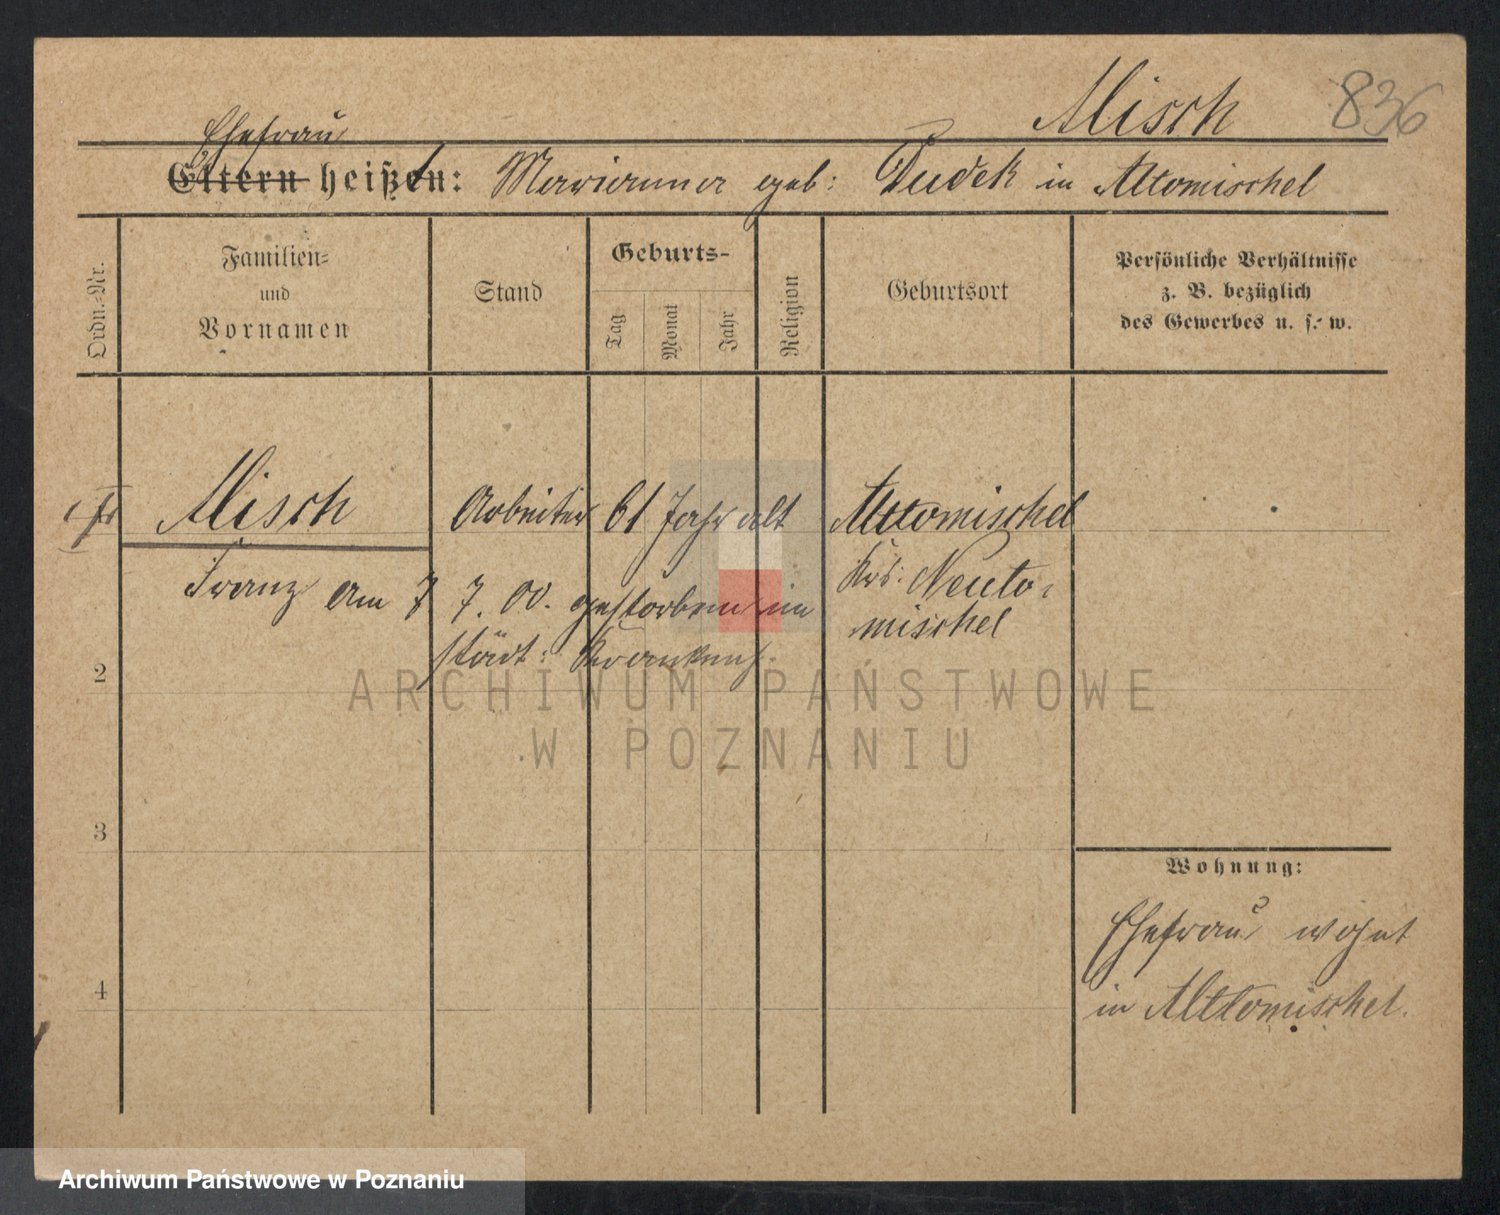 Misch 836
Ehefrau
Eltern heißen: Marianna geb: Dudek in Altomischel
Ordn.-Nr.
Familien-
und
Vornamen
Stand
Geburts-
Tag
Monat
Jahr
Religion
Geburtsort
Persönliche Verhältnisse
z. B. bezüglich
des Gewerbes u. s. w.
1 Misch Arbeiter 61 Jahr alt Alttomischel
Franz am 7 7. 00. gestorben im Krs. Neuto-
städt: Krankenh. mischel
2
ARCHIWUM PAŃSTWOWE
W POZNANIU
3
Wohnung:
Ehefrau wohnt
4
in Alttomischel.
Archiwum Państwowe w Poznaniu